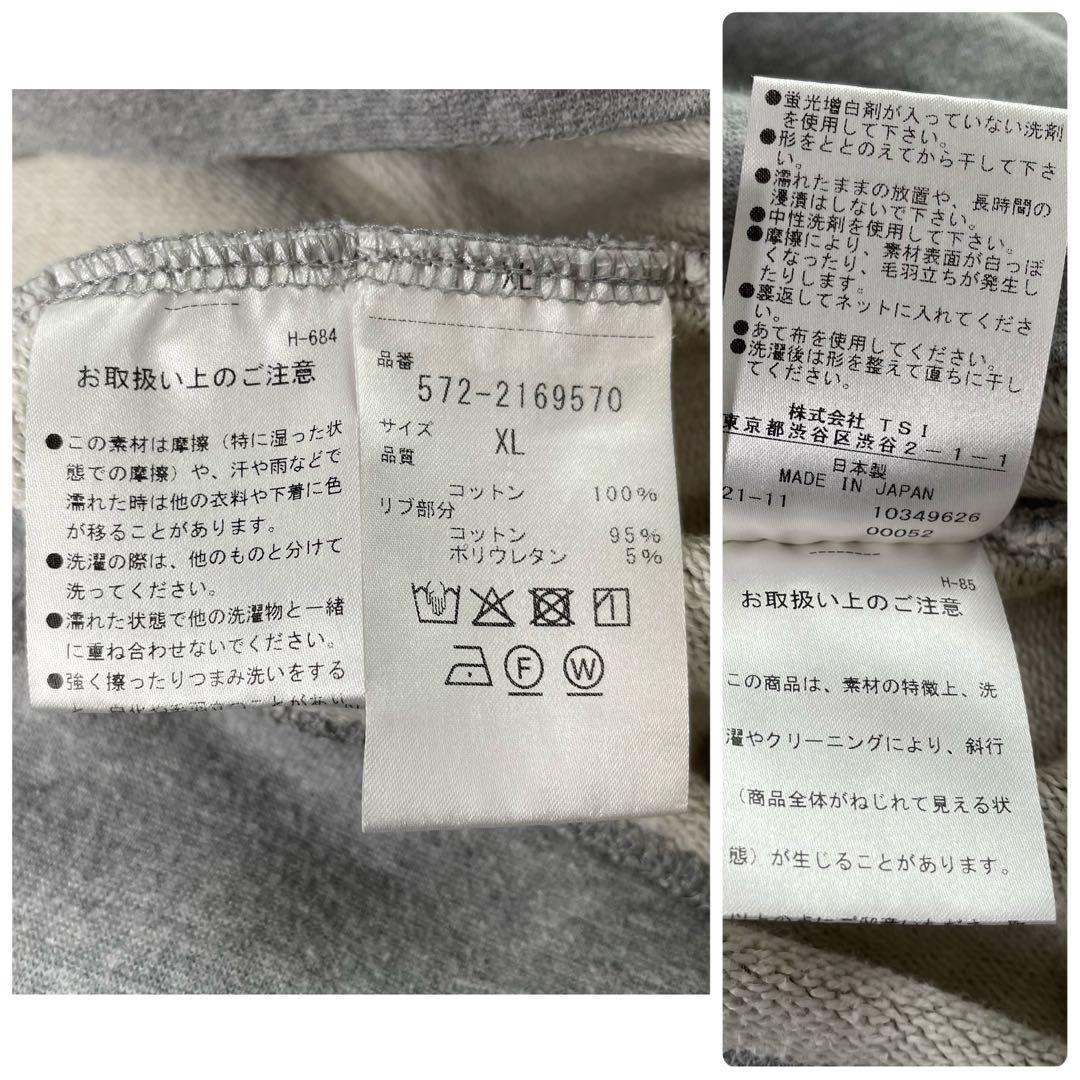 XL
H-684
お取扱い上のご注意
●この素材は摩擦（特に湿った状
態での摩擦）や、汗や雨などで
濡れた時は他の衣料や下着に色
が移ることがあります。
●洗濯の際は、他のものと分けて
洗ってください。
●濡れた状態で他の洗濯物と一緒
に重ね合わせないでください。
●強く擦ったりつまみ洗いをする
品番
572-2169570
サイズ
XL
品質
コットン 100%
リブ部分
コットン 95%
ポリウレタン 5%
1
F W
●蛍光増白剤が入っていない洗剤
を使用して下さい。
●形をととのえてから干して下さ
い。
●濡れたままの放置や、長時間の
浸漬はしないで下さい。
●中性洗剤を使用して下さい。
●摩擦により、素材表面が白っぽ
くなったり、毛羽立ちが発生し
たりします。
●裏返してネットに入れてくださ
い。
●あて布を使用してください。
●洗濯後は形を整えて直ちに干し
てください。
株式会社 TSI
東京都渋谷区渋谷2-1-1
日本製
MADE IN JAPAN
21-11 10349626
00052
H-85
お取扱い上のご注意
この商品は、素材の特徴上、洗
濯やクリーニングにより、斜行
（商品全体がねじれて見える状
態）が生じることがあります。